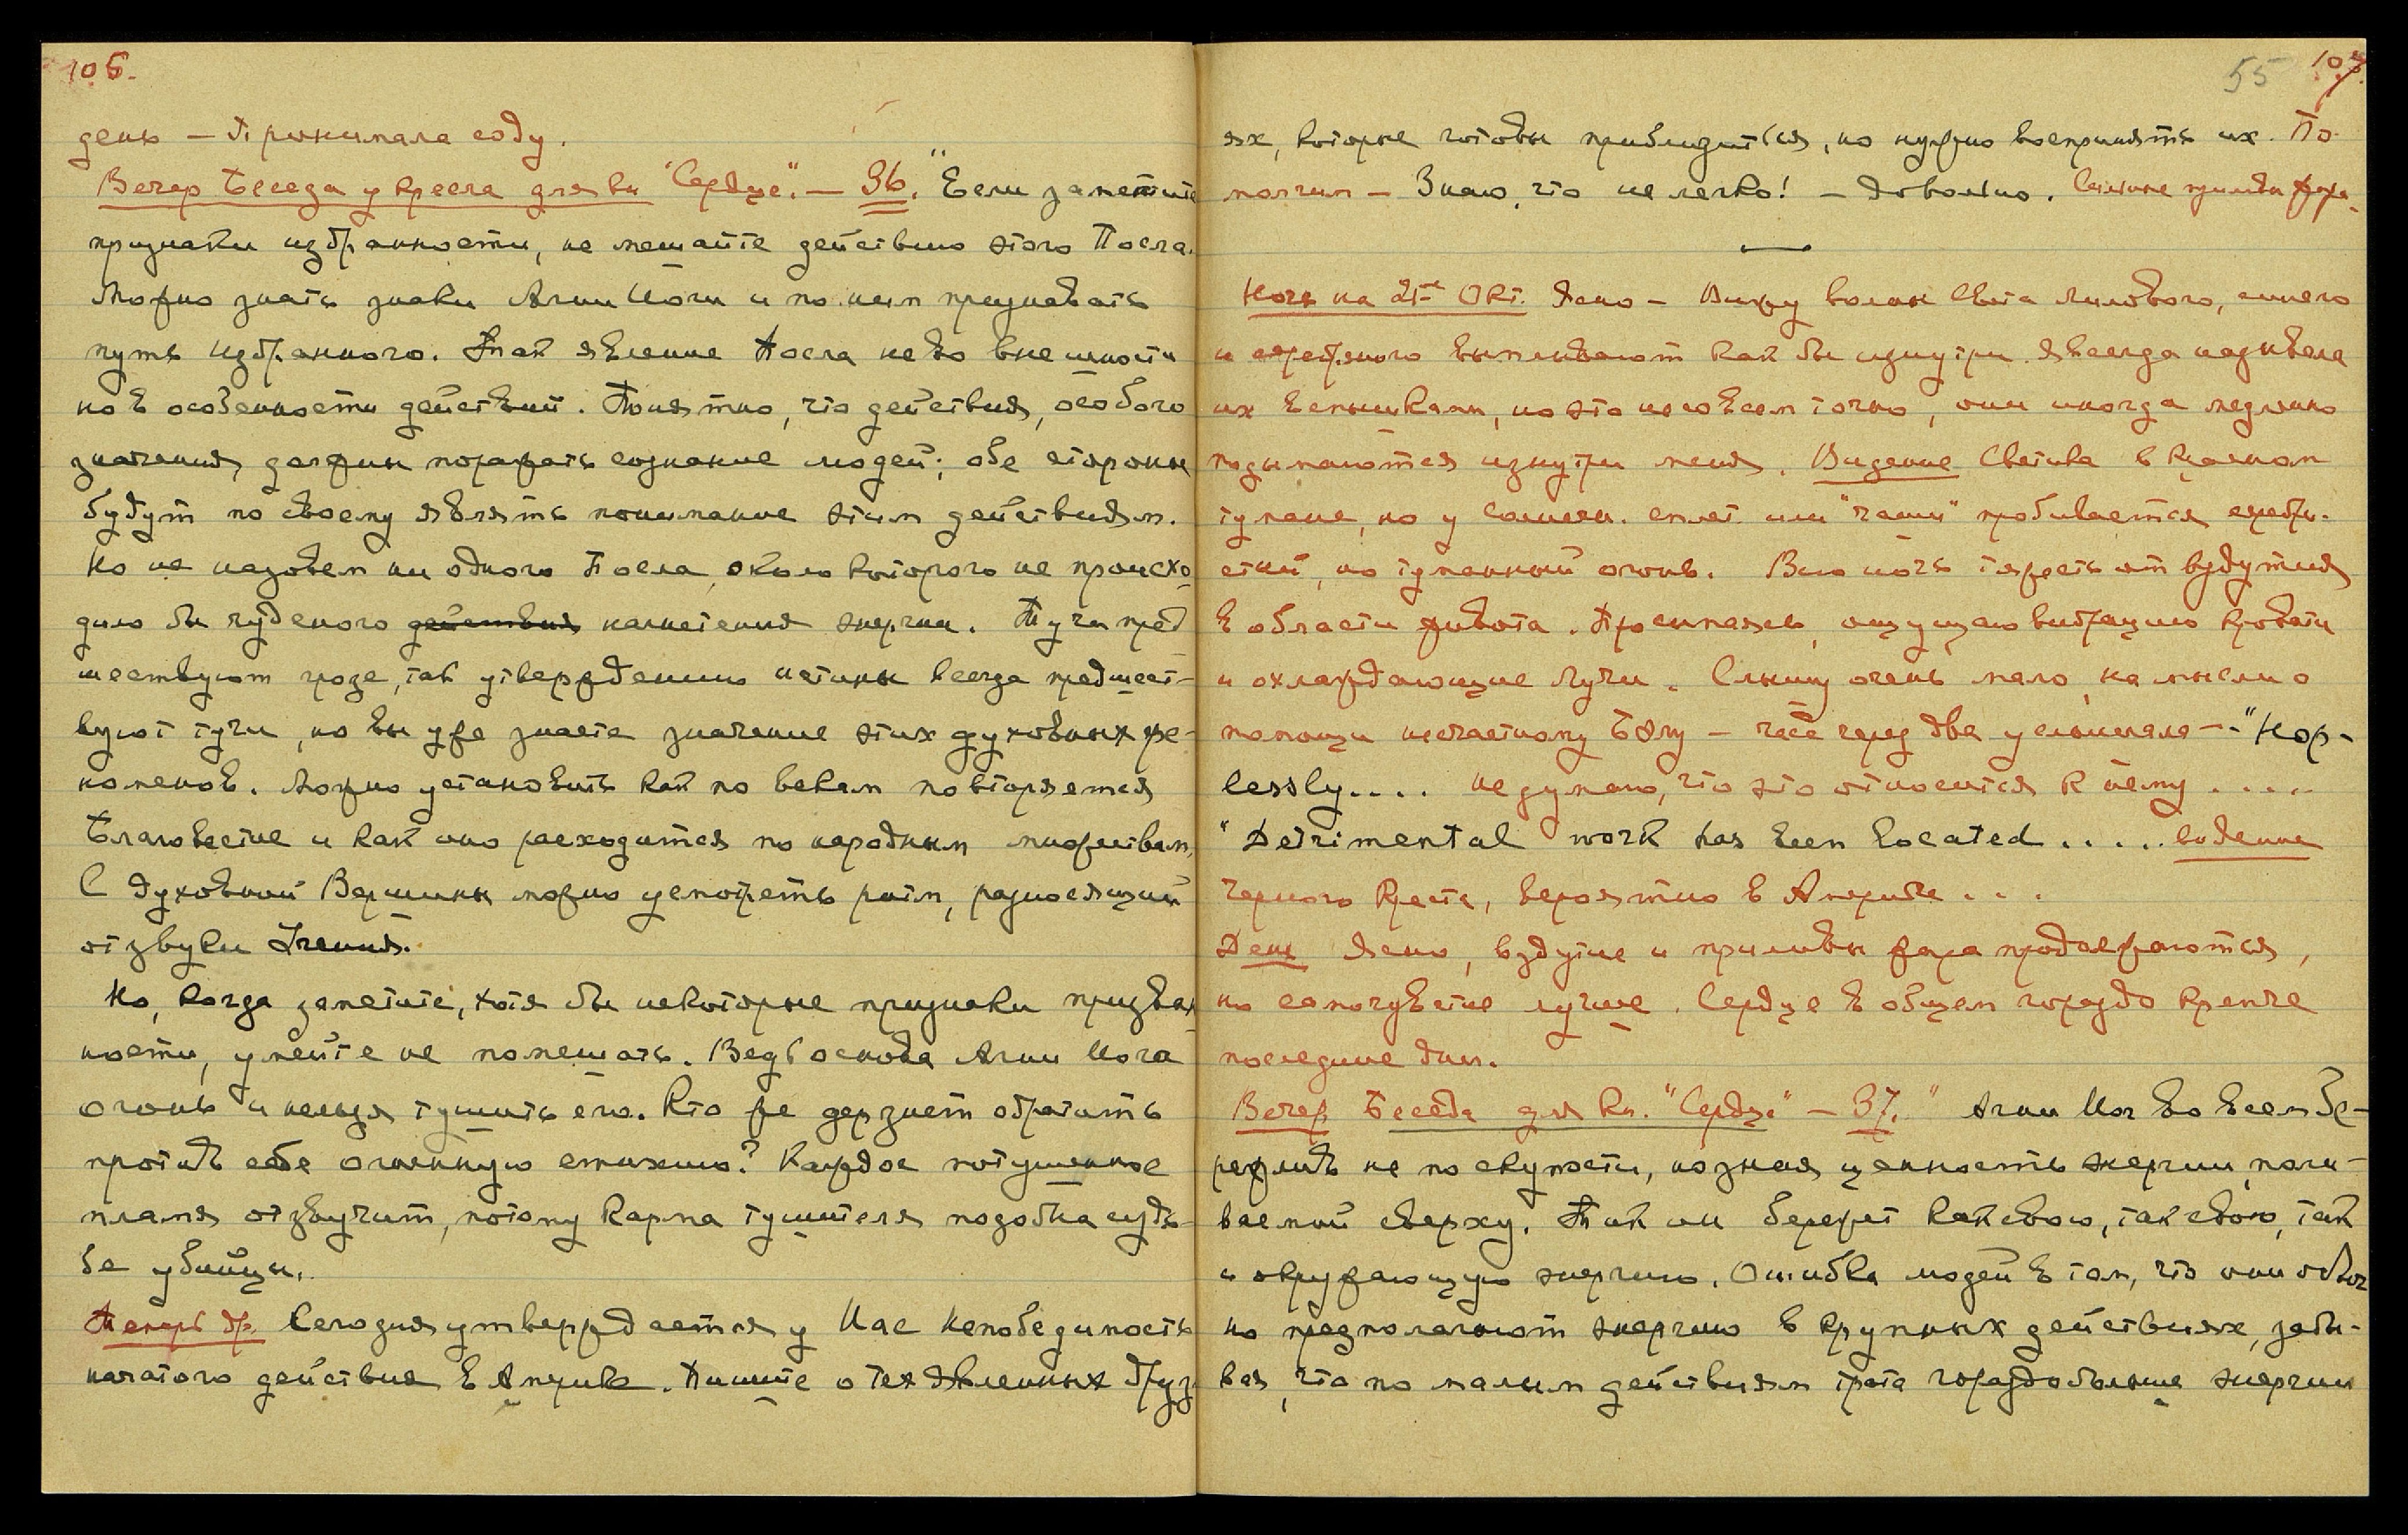 106.
день — Принимала соду.
Вечер Беседа у кресла для кн "Сердце". — 36. "Если заметите
признаки избранности, не мешайте действию этого Посла.
Можно знать знаки Агни Йоги и по ним признавать
путь избранного. Так явление Посла не во внешности
но в особенности действий. Понятно, что действия, особого
значения, должны поражать сознание людей; обе стороны
будут по своему являть понимание этим действиям.
Но не назовем ни одного Посла, около которого не происхо-
дило бы чудесного действия нагнетения энергии. Тучи пред
шествуют грозе, так утверждению истины всегда предшест-
вуют тучи, но вы уже знаете значение этих духовных фе-
номенов. Можно установить как по векам повторяется
Благовестие и как оно расходится по народным множествам.
С духовной Вершины можно усмотреть ритм, разносящий
отзвуки Учения.
Но, когда заметите, хотя бы некоторые признаки призван
ности, умейте не помешать. Ведь основа Агни Йога
огонь и нельзя тушить его. Кто же дерзнет обратить
против себе огненную стихию? Каждое потушенное
пламя отзвучит, потому карма тушителя подобна судь-
бе убийцы.
Теперь др. Сегодня утверждается у Нас Непобедимость
начатого действия в Америке. Пишите о тех явленных друз
55 107.
ях, которые готовы приблизиться, но нужно воспринять их. По-
молчим — Знаю, что не легко! — Довольно. Сильные приливы жара.
Ночь на 21-е Окт. Ясно — Вижу волны Света лилового, синего
и серебряного выплывают как бы изнутри. Я всегда называла
их вспышками, но это не совсем точно, они иногда медленно
подымаются изнутри меня. Видение Светика в красном
тумане, но у солнечн. сплет. или "чаши" пробивается серебри-
стый, но туманный огонь. Всю ночь тяжесть от вздутия
в области живота. Просыпаясь, ощущаю вибрацию кровати
и охлаждающие лучи. Слышу очень мало, на мысли о
помощи несчастному Бэлу — часа через два услышала — "Hop-
lessly.... не думаю, что это относится к нему ....
"Detrimental work has been located ..... видение
черного креста, вероятно в Америке ...
День Ясно, вздутие и приливы жара продолжаются,
но самочувствие лучше. Сердце в общем гораздо крепче
последние дни.
Вечер Беседа для кн. "Сердце" — 37. " Агни Йог во всем бе-
режлив не по скупости, но зная ценность энергии, изли-
ваемой сверху. Так он бережет как свою, так свою, так
и окружающую энергию. Ошибка людей в том, что они обыч
но предполагают энергию в крупных действиях, забы-
вая, что по малым действиям трата гораздо больше энергии